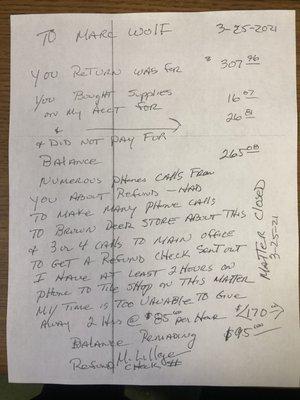 TO MARC WOLF 3-25-2021
YOU RETURN WAS FOR $ 307.96
YOU BOUGHT SUPPLIES 16.07
ON MY ACCT FOR 26.81
& DID NOT PAY FOR
BALANCE 265.08
NUMEROUS PHONES CALLS FROM
YOU ABOUT REFUND - HAD
TO MAKE MANY PHONE CALLS
TO BROWN DEER STORE ABOUT THIS
& 3 OR 4 CALLS TO MAIN OFFICE
TO GET A REFUND CHECK SENT OUT
I HAVE AT LEAST 2 HOURS ON
PHONE TO TILE SHOP ON THIS MATTER
MY TIME IS TOO VALUABLE TO GIVE
AWAY 2 HRS @ $85.00 PER HOUR $170.00
BALANCE REMAINING $95.00
REFUND CHECK #
MATTER CLOSED
3-25-21